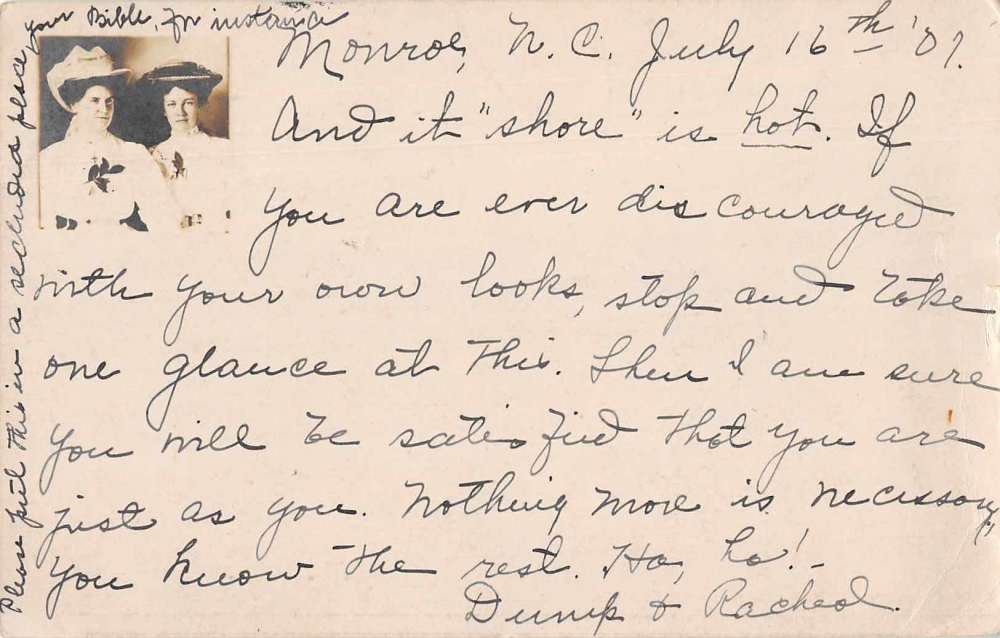 Monroe, N. C. July 16th '07.
And it "shore" is hot. If
you are ever discouraged
with your own looks, stop and take
one glance at this. Then I am sure
you will be satisfied that you are
just as you. Nothing more is necessary
you know the rest. Ha, ha!
Dump & Rachel.
Please put this in a secluded place,
your Bible, for instance